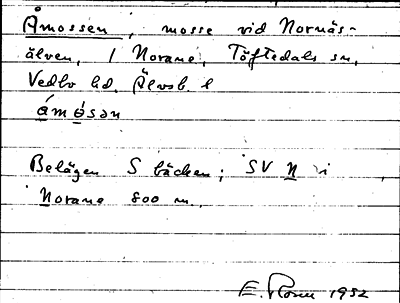 Åmossen, mosse vid Nornäs-
älven, i Norane, Töftedals sn,
Vedbo hd. Älvsb. l
ámo̱sən
Belägen S bäcken; SV N i
Norane 800 m.
E. 1952